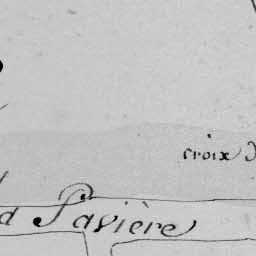 croix
d Pavière